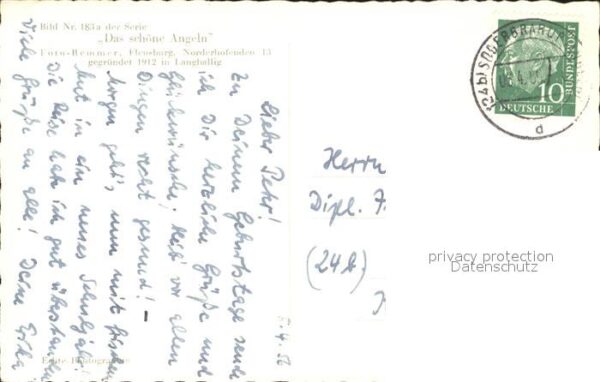 Bild Nr. 185a der Serie
„Das schöne Angeln"
Foto-Remmer, Flensburg, Norderhofenden 13
gegründet 1912 in Langballig
Lieber Peter!
Zu Deinem Geburtstage sende
ich Dir herzliche Grüße und
Glückwünsche, bleib vor allen
Dingen recht gesund! –
Morgen geht's nun mit frischem
Mut in ein neues Schuljahr!
Die Reise hab ich gut überstanden
Viele Grüße an alle! Deine Erika
8.4.56
Echte Photographie
Herrn
Dipl.
(24b)
(24b) SÜDERBRARUP
d
10
DEUTSCHE
BUNDESPOST
privacy protection
Datenschutz